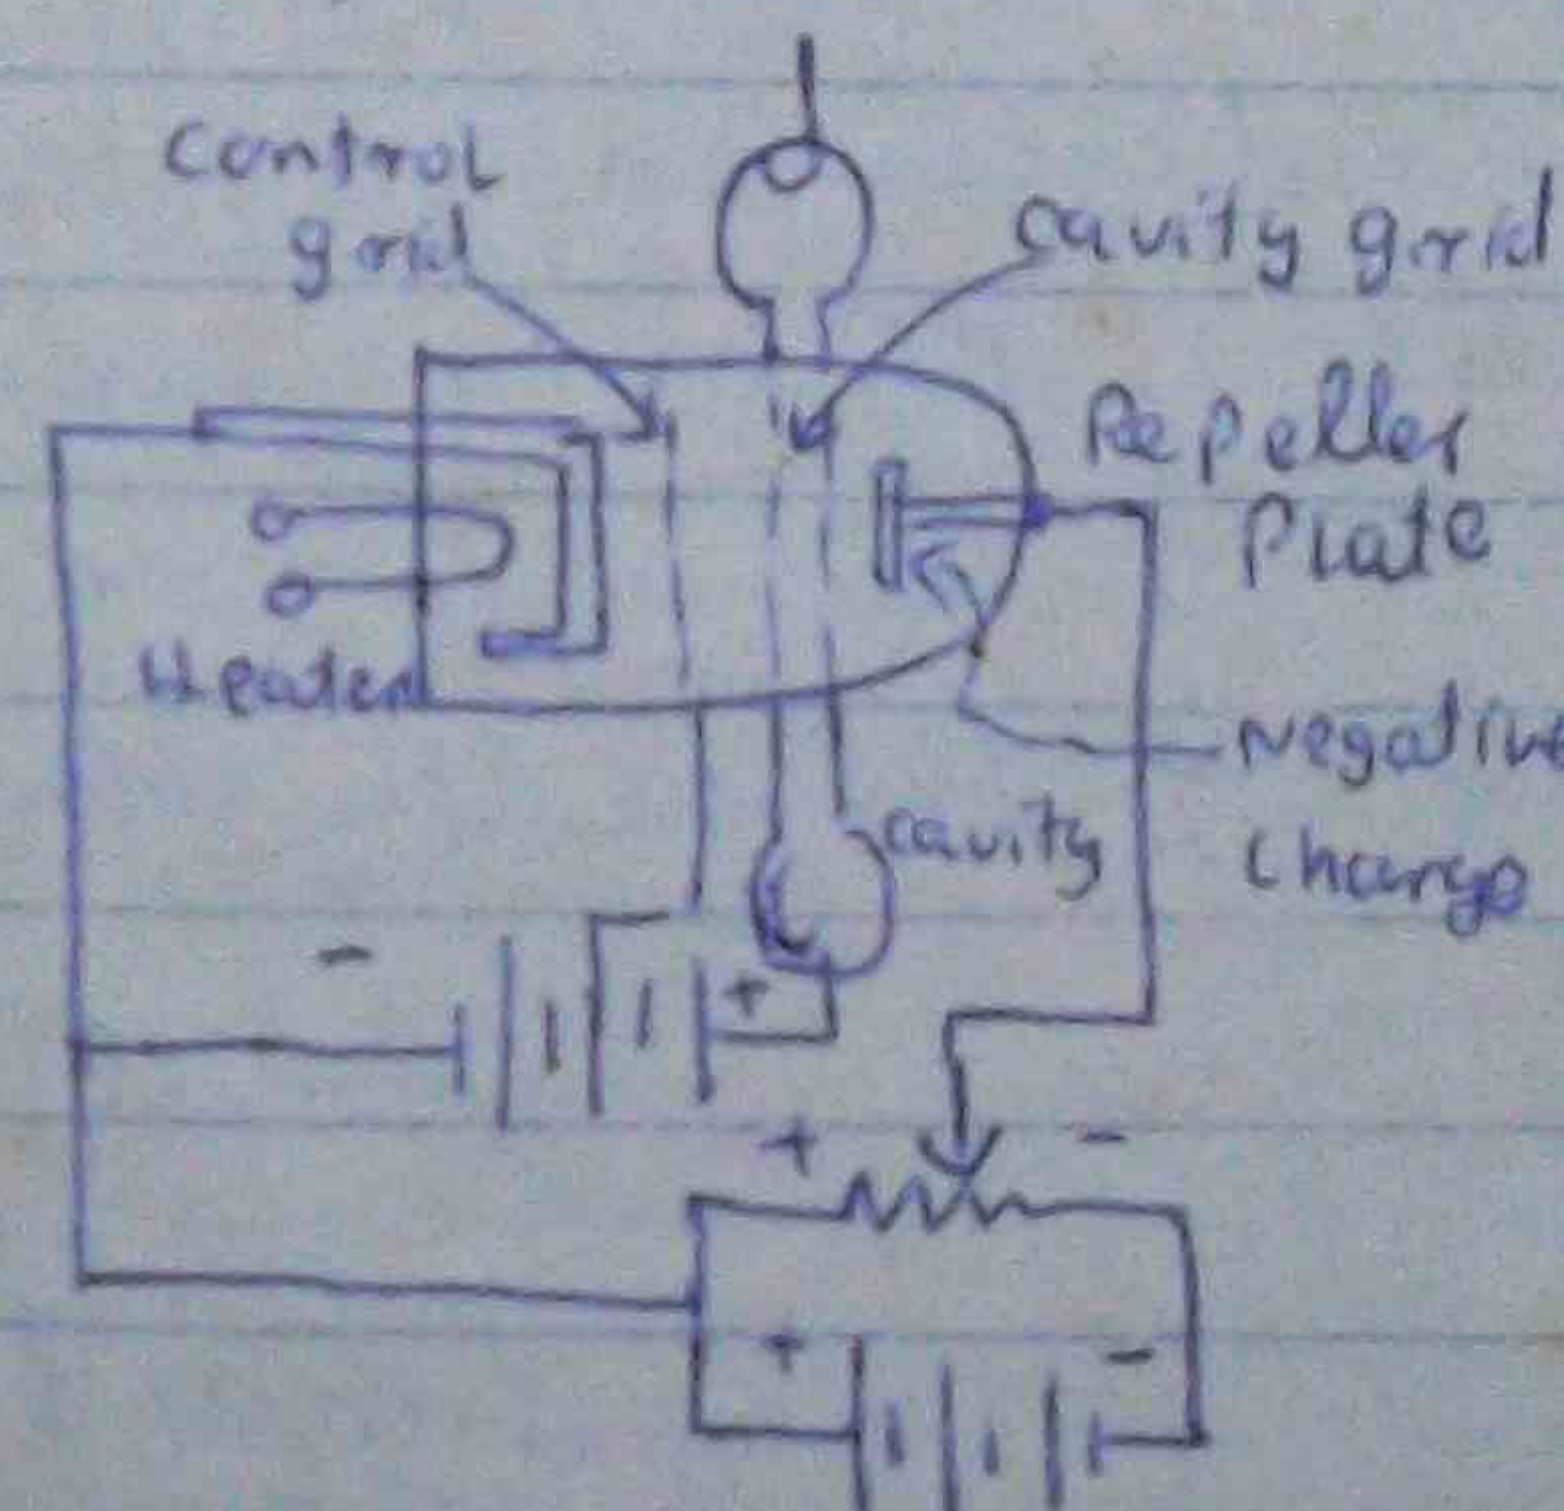 Control
grid
cavity grid
Repeller
Plate
Heater
Negative
charge
cavity
-
+
+ -
+ -